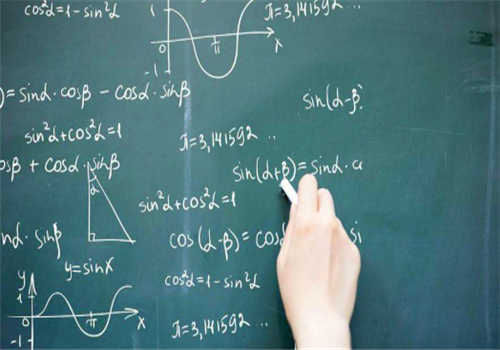 cos²α=1-sin²α
π=3,141592 ...
0 π x
-1
)=sinα·cosβ - cosα·sinβ
sin(α-β)
sin²α+cos²α=1
π=3,141592 ...
osβ + cosα·sinβ
sin(α+β)=sinα·c
α
sin²α+cos²α=1
nα·sinβ
cos(α-β)=cosα si
y=sinx
cos²α=1-sin²α
y
1
0 π x
-1
π=3,141592 ...